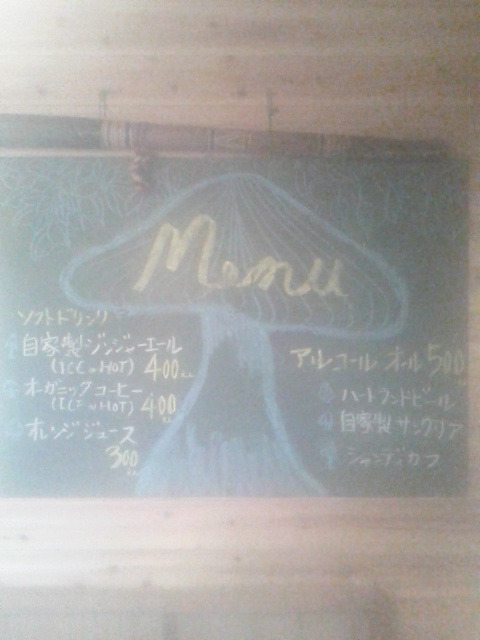 Menu
ソフトドリンク
自家製ジンジャーエール
(ICE or HOT) 400
オーガニックコーヒー
(ICE or HOT) 400
オレンジジュース
300
アルコール オール500
ハートランドビール
自家製サングリア
シャンディガフ